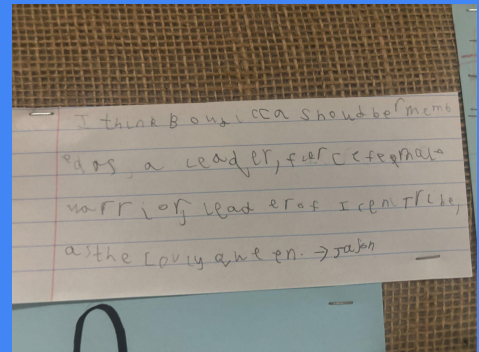 I think Boudicca shoud be rmemb
ed as, a leader, fierce feemale
warrior, lead er of Iceni Tribe,
as the Lovly queen. → Jason